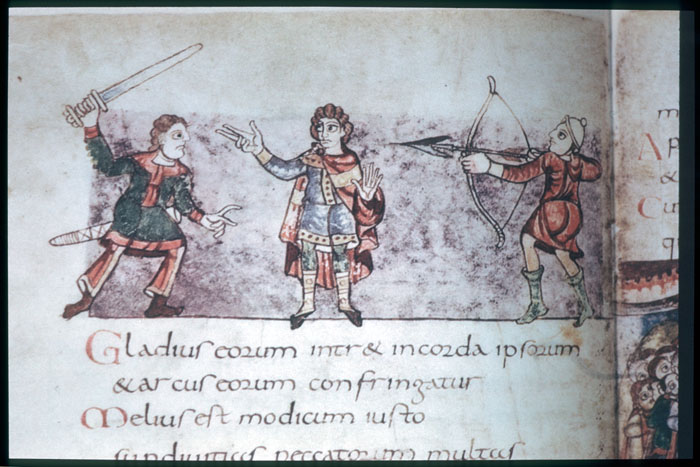 Gladius eorum intr& incorda ipsorum
& arcus eorum confringatur
Melius est modicum iusto
diuitias peccatorum multas